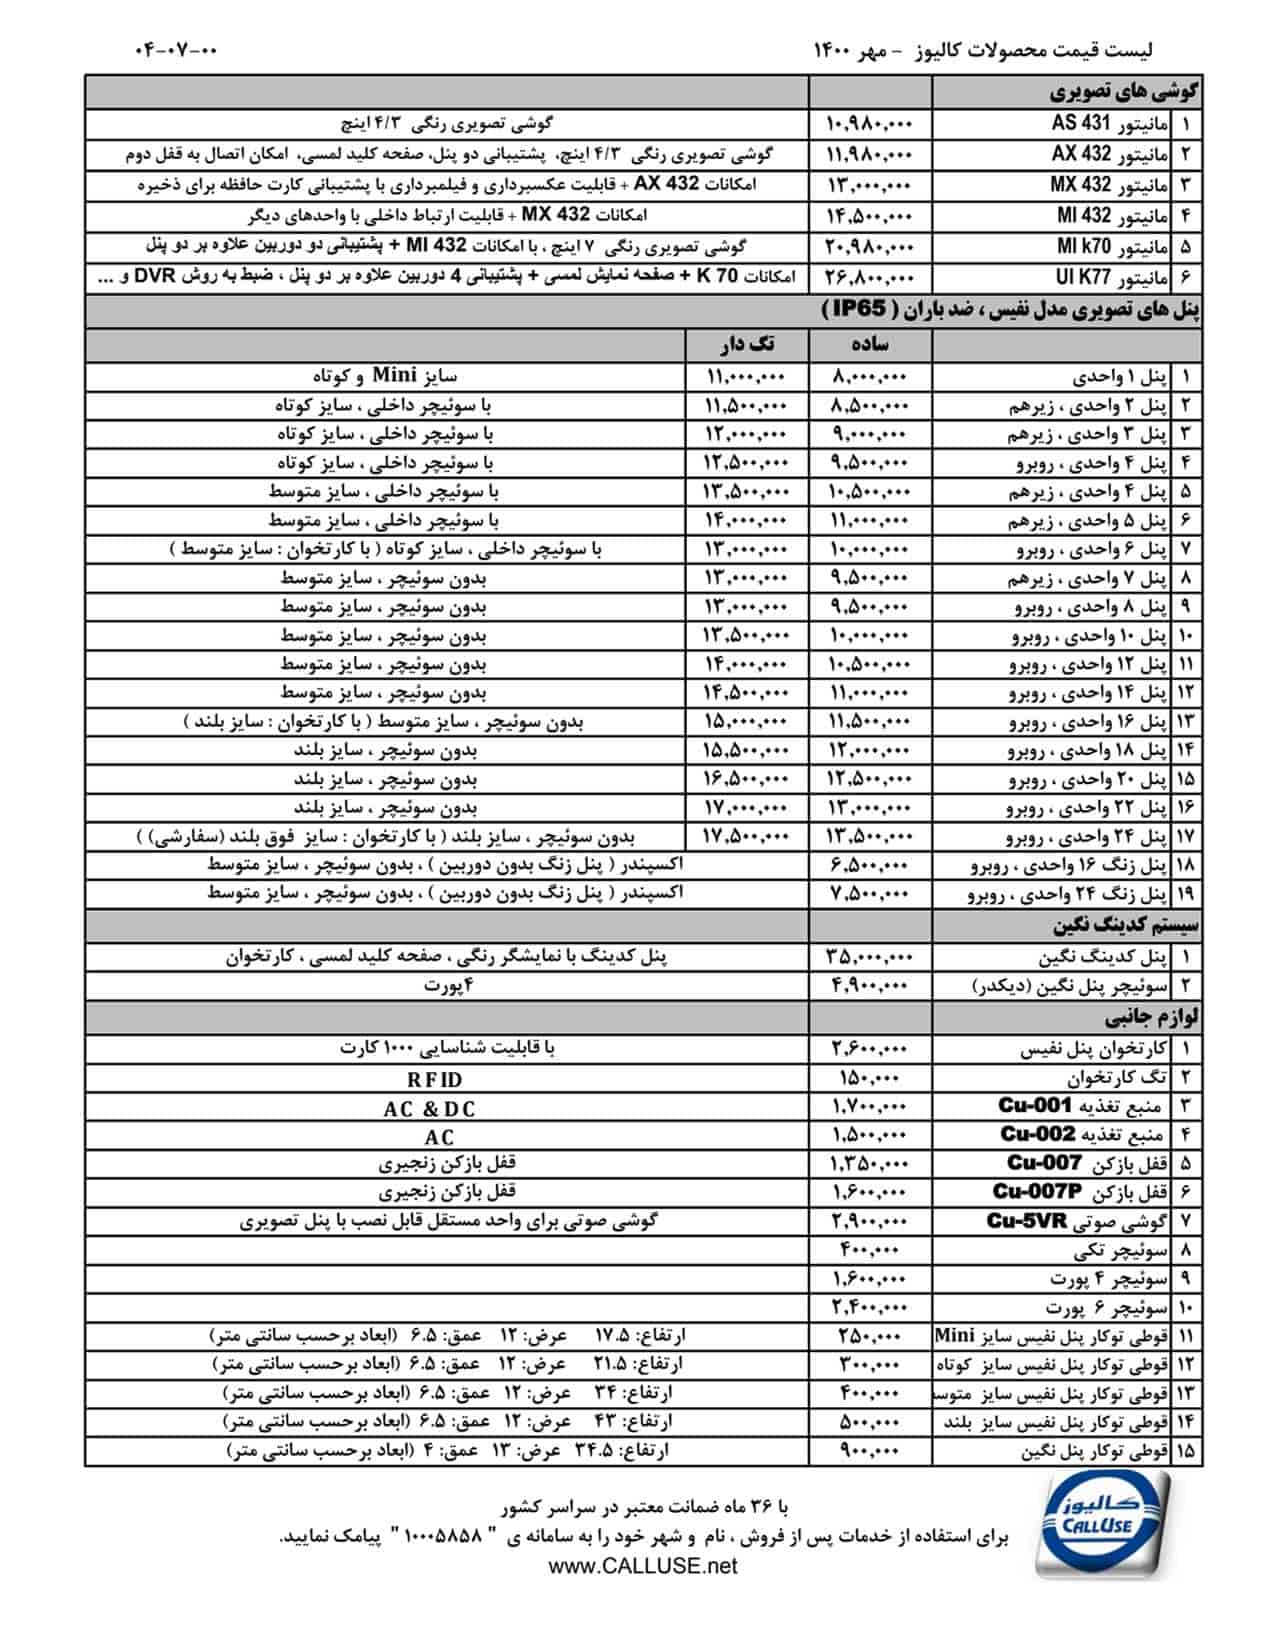 لیست قیمت محصولات کالیوز - مهر ۱۴۰۰ ۰۴-۰۷-۰۰
گوشی های تصویری
۱ مانیتور AS 431 ۱۰,۹۸۰,۰۰۰ گوشی تصویری رنگی ۴/۳ اینچ
۲ مانیتور AX 432 ۱۱,۹۸۰,۰۰۰ گوشی تصویری رنگی ۴/۳ اینچ، پشتیبانی دو پنل، صفحه کلید لمسی، امکان اتصال به قفل دوم
۳ مانیتور MX 432 ۱۳,۰۰۰,۰۰۰ امکانات AX 432 + قابلیت عکسبرداری و فیلمبرداری با پشتیبانی کارت حافظه برای ذخیره
۴ مانیتور MI 432 ۱۴,۵۰۰,۰۰۰ امکانات MX 432 + قابلیت ارتباط داخلی با واحدهای دیگر
۵ مانیتور MI k70 ۲۰,۹۸۰,۰۰۰ گوشی تصویری رنگی ۷ اینچ ، با امکانات MI 432 + پشتیبانی دو دوربین علاوه بر دو پنل
۶ مانیتور UI K77 ۲۶,۸۰۰,۰۰۰ امکانات K 70 + صفحه نمایش لمسی + پشتیبانی 4 دوربین علاوه بر دو پنل ، ضبط به روش DVR و ...
پنل های تصویری مدل نفیس ، ضد باران ( IP65 )
ساده تگ دار
۱ پنل ۱ واحدی ۸,۰۰۰,۰۰۰ ۱۱,۰۰۰,۰۰۰ سایز Mini و کوتاه
۲ پنل ۲ واحدی ، زیرهم ۸,۵۰۰,۰۰۰ ۱۱,۵۰۰,۰۰۰ با سوئیچر داخلی ، سایز کوتاه
۳ پنل ۳ واحدی ، زیرهم ۹,۰۰۰,۰۰۰ ۱۲,۰۰۰,۰۰۰ با سوئیچر داخلی ، سایز کوتاه
۴ پنل ۴ واحدی ، روبرو ۹,۵۰۰,۰۰۰ ۱۲,۵۰۰,۰۰۰ با سوئیچر داخلی ، سایز کوتاه
۵ پنل ۴ واحدی ، زیرهم ۱۰,۵۰۰,۰۰۰ ۱۳,۵۰۰,۰۰۰ با سوئیچر داخلی ، سایز متوسط
۶ پنل ۵ واحدی ، زیرهم ۱۱,۰۰۰,۰۰۰ ۱۴,۰۰۰,۰۰۰ با سوئیچر داخلی ، سایز متوسط
۷ پنل ۶ واحدی ، روبرو ۱۰,۰۰۰,۰۰۰ ۱۳,۰۰۰,۰۰۰ با سوئیچر داخلی ، سایز کوتاه ( با کارتخوان : سایز متوسط )
۸ پنل ۷ واحدی ، زیرهم ۹,۵۰۰,۰۰۰ ۱۳,۰۰۰,۰۰۰ بدون سوئیچر ، سایز متوسط
۹ پنل ۸ واحدی ، روبرو ۹,۵۰۰,۰۰۰ ۱۳,۰۰۰,۰۰۰ بدون سوئیچر ، سایز متوسط
۱۰ پنل ۱۰ واحدی ، روبرو ۱۰,۰۰۰,۰۰۰ ۱۳,۵۰۰,۰۰۰ بدون سوئیچر ، سایز متوسط
۱۱ پنل ۱۲ واحدی ، روبرو ۱۰,۵۰۰,۰۰۰ ۱۴,۰۰۰,۰۰۰ بدون سوئیچر ، سایز متوسط
۱۲ پنل ۱۴ واحدی ، روبرو ۱۱,۰۰۰,۰۰۰ ۱۴,۵۰۰,۰۰۰ بدون سوئیچر ، سایز متوسط
۱۳ پنل ۱۶ واحدی ، روبرو ۱۱,۵۰۰,۰۰۰ ۱۵,۰۰۰,۰۰۰ بدون سوئیچر ، سایز متوسط ( با کارتخوان : سایز بلند )
۱۴ پنل ۱۸ واحدی ، روبرو ۱۲,۰۰۰,۰۰۰ ۱۵,۵۰۰,۰۰۰ بدون سوئیچر ، سایز بلند
۱۵ پنل ۲۰ واحدی ، روبرو ۱۲,۵۰۰,۰۰۰ ۱۶,۵۰۰,۰۰۰ بدون سوئیچر ، سایز بلند
۱۶ پنل ۲۲ واحدی ، روبرو ۱۳,۰۰۰,۰۰۰ ۱۷,۰۰۰,۰۰۰ بدون سوئیچر ، سایز بلند
۱۷ پنل ۲۴ واحدی ، روبرو ۱۳,۵۰۰,۰۰۰ ۱۷,۵۰۰,۰۰۰ بدون سوئیچر ، سایز بلند ( با کارتخوان : سایز فوق بلند (سفارشی) )
۱۸ پنل زنگ ۱۶ واحدی ، روبرو ۶,۵۰۰,۰۰۰ اکسپندر ( پنل زنگ بدون دوربین ) ، بدون سوئیچر ، سایز متوسط
۱۹ پنل زنگ ۲۴ واحدی ، روبرو ۷,۵۰۰,۰۰۰ اکسپندر ( پنل زنگ بدون دوربین ) ، بدون سوئیچر ، سایز متوسط
سیستم کدینگ نگین
۱ پنل کدینگ نگین ۳۵,۰۰۰,۰۰۰ پنل کدینگ با نمایشگر رنگی ، صفحه کلید لمسی ، کارتخوان
۲ سوئیچر پنل نگین (دیکدر) ۴,۹۰۰,۰۰۰ ۴پورت
لوازم جانبی
۱ کارتخوان پنل نفیس ۲,۶۰۰,۰۰۰ با قابلیت شناسایی ۱۰۰۰ کارت
۲ تگ کارتخوان ۱۵۰,۰۰۰ RFID
۳ منبع تغذیه Cu-001 ۱,۷۰۰,۰۰۰ AC & DC
۴ منبع تغذیه Cu-002 ۱,۵۰۰,۰۰۰ AC
۵ قفل بازکن Cu-007 ۱,۳۵۰,۰۰۰ قفل بازکن زنجیری
۶ قفل بازکن Cu-007P ۱,۶۰۰,۰۰۰ قفل بازکن زنجیری
۷ گوشی صوتی Cu-5VR ۲,۹۰۰,۰۰۰ گوشی صوتی برای واحد مستقل قابل نصب با پنل تصویری
۸ سوئیچر تکی ۴۰۰,۰۰۰
۹ سوئیچر ۴ پورت ۱,۶۰۰,۰۰۰
۱۰ سوئیچر ۶ پورت ۲,۴۰۰,۰۰۰
۱۱ قوطی توکار پنل نفیس سایز Mini ۲۵۰,۰۰۰ ارتفاع: ۱۷.۵ عرض: ۱۲ عمق: ۶.۵ (ابعاد برحسب سانتی متر)
۱۲ قوطی توکار پنل نفیس سایز کوتاه ۳۰۰,۰۰۰ ارتفاع: ۲۱.۵ عرض: ۱۲ عمق: ۶.۵ (ابعاد برحسب سانتی متر)
۱۳ قوطی توکار پنل نفیس سایز متوسط ۴۰۰,۰۰۰ ارتفاع: ۳۴ عرض: ۱۲ عمق: ۶.۵ (ابعاد برحسب سانتی متر)
۱۴ قوطی توکار پنل نفیس سایز بلند ۵۰۰,۰۰۰ ارتفاع: ۴۳ عرض: ۱۲ عمق: ۶.۵ (ابعاد برحسب سانتی متر)
۱۵ قوطی توکار پنل نگین ۹۰۰,۰۰۰ ارتفاع: ۳۴.۵ عرض: ۱۳ عمق: ۴ (ابعاد برحسب سانتی متر)
با ۳۶ ماه ضمانت معتبر در سراسر کشور
برای استفاده از خدمات پس از فروش ، نام و شهر خود را به سامانه ی " ۱۰۰۰۵۸۵۸ " پیامک نمایید.
www.CALLUSE.net
کالیوز
CALLUSE